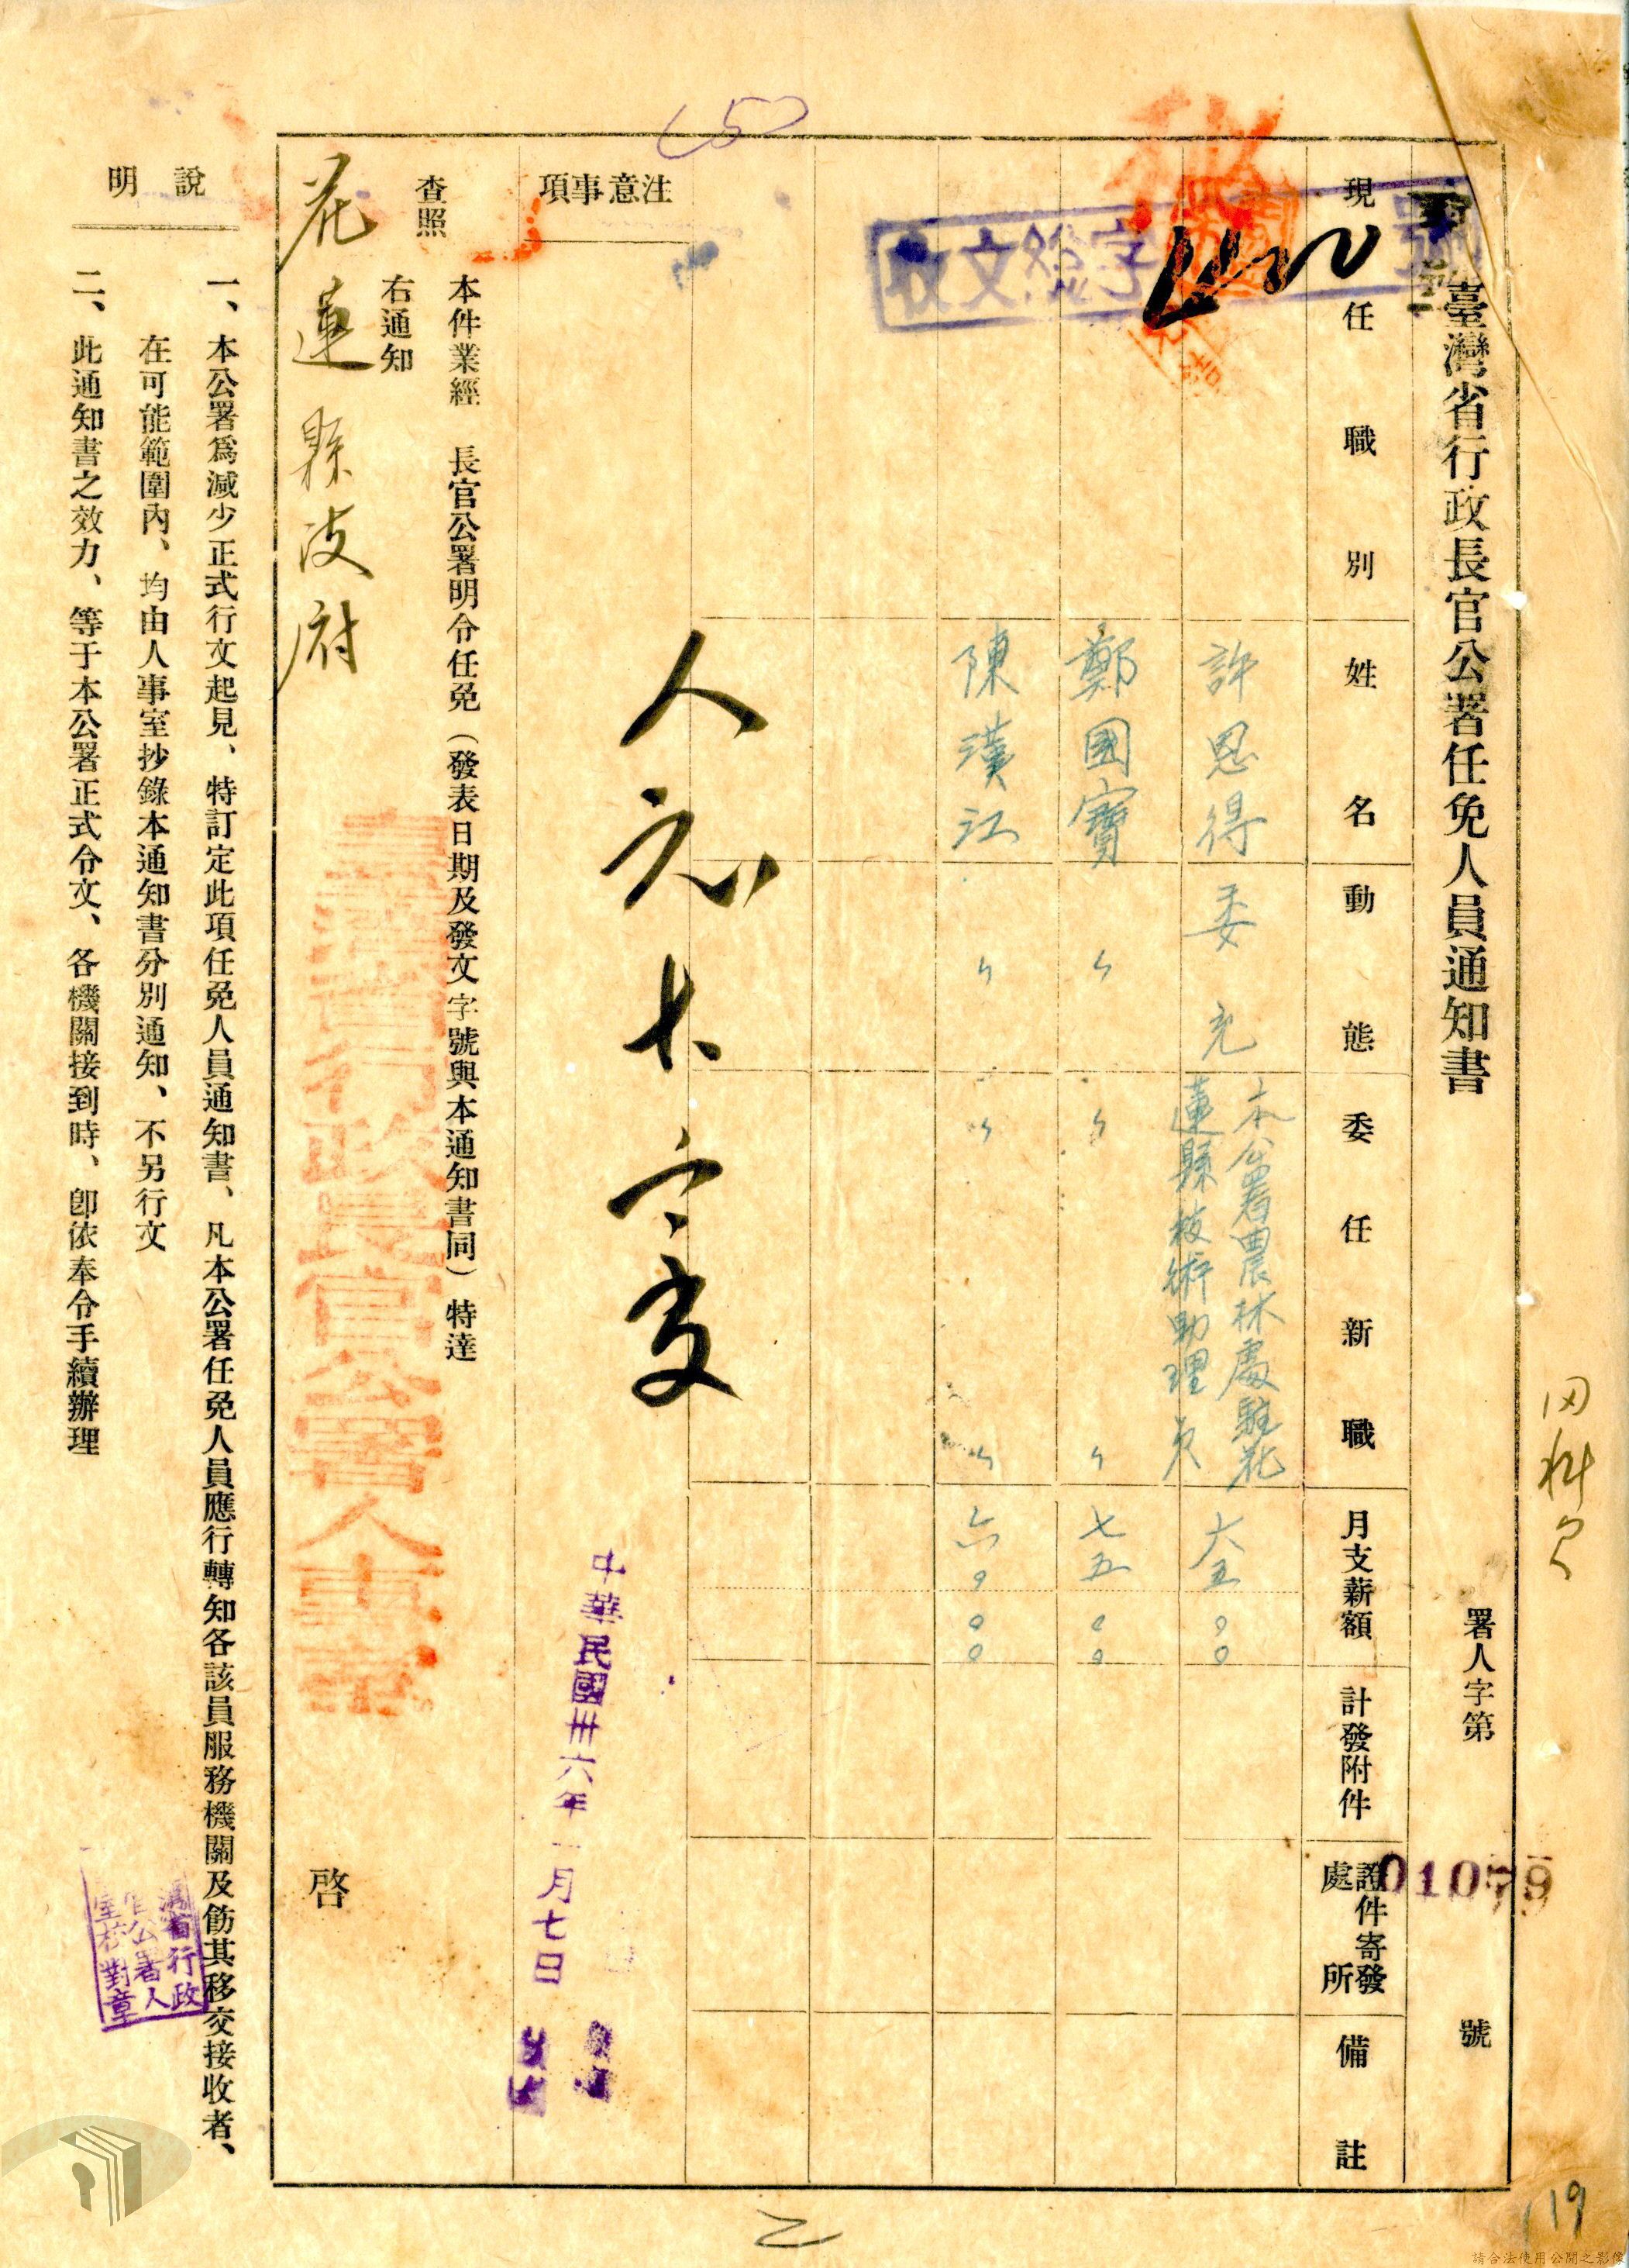 臺灣省行政長官公署任免人員通知書
署人字第 01079 號
現任職別
姓名
動態
委任新職
月支薪額
計發附件
證件寄發處所
備註
許恩得 委充 本公署農林處駐花蓮縣技術助理員 六五 〇〇
鄭國寶 〃 〃 〃 七五 〇〇
陳漢江 〃 〃 〃 六〇 〇〇
收文總字 號
注意事項
中華民國卅六年一月七日
本件業經 長官公署明令任免（發表日期及發文字號與本通知書同）特達
查照
右通知
花蓮縣政府
臺灣省行政長官公署人事室
啓
說明
一、本公署爲減少正式行文起見、特訂定此項任免人員通知書、凡本公署任免人員應行轉知各該員服務機關及飭其移交接收者、
在可能範圍內、均由人事室抄錄本通知書分別通知、不另行文
二、此通知書之效力、等于本公署正式令文、各機關接到時、卽依奉令手續辦理
灣省行政
官公署人
室校對章
119
請合法使用公開之影像